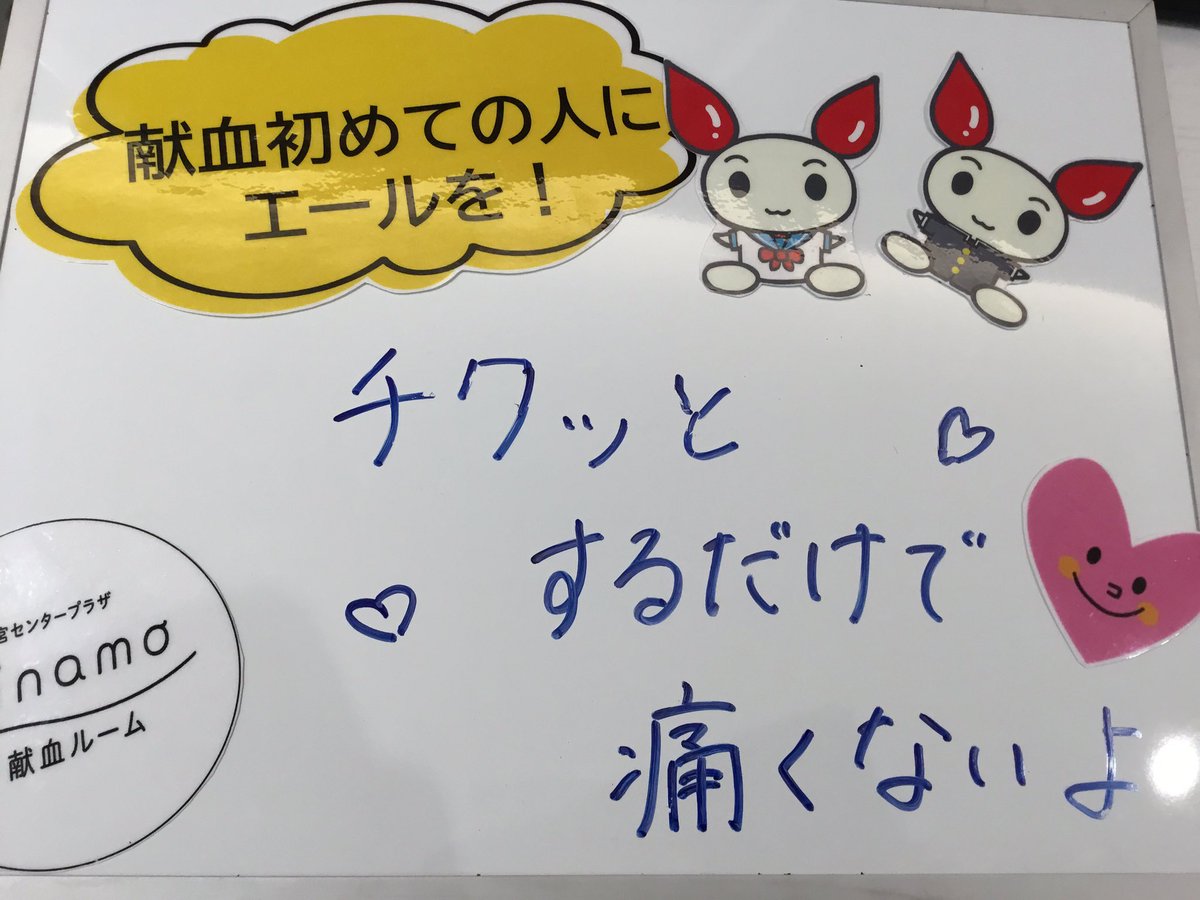 献血初めての人に、
エールを!
チクッと
するだけで
痛くないよ
宮センタープラザ
namo
献血ルーム